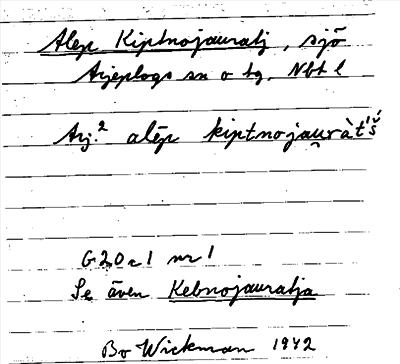 Alep Kiptnojauratj, sjö
Arjeplogs sn o tg. Nbt l
Arj.² alēp kiptnojau̯ràt́'š́
G20a1 nr 1
Se även Kebnojauratja
Bo Wickman 1942